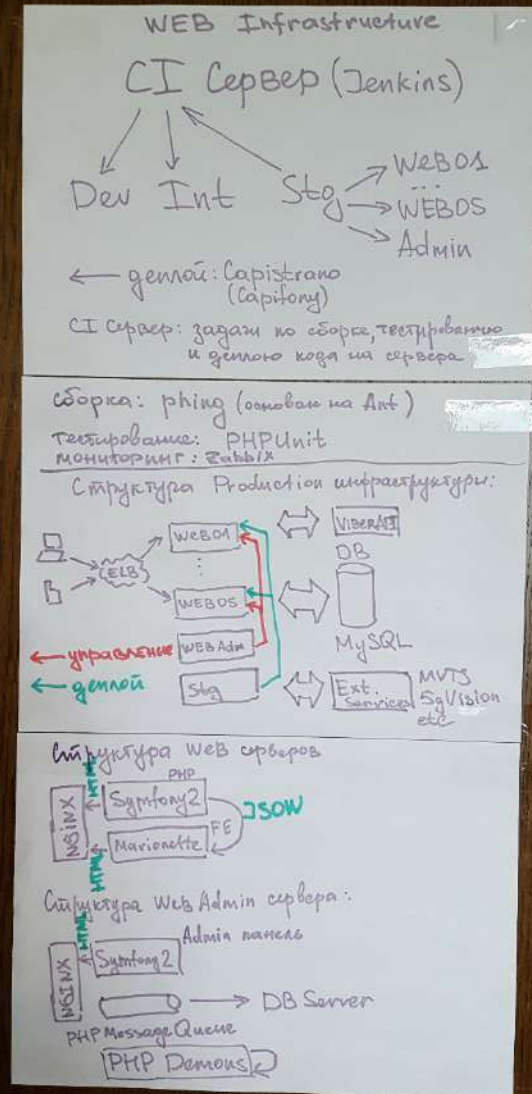 WEB Infrastructure
CI Сервер (Jenkins)
Dev Int Stg
WEB01
...
WEB05
Admin
← деплой: Capistrano
(Capifony)
CI Сервер: задачи по сборке, тестированию
и деплою кода на сервера
сборка: phing (основан на Ant)
тестирование: PHPUnit
мониторинг: Zabbix
Структура Production инфраструктуры:
ELB
WEB01
⋮
WEB05
WEB Adm
Stg
ViberAPI
DB
MySQL
Ext. Services
MVTS
5gVision
etc
← управление
← деплой
Структура WEB серверов
NGINX
HTML
PHP
Symfony2
JSON
FE
Marionette
HTML
Структура Web Admin сервера:
NGINX
HTML
Symfony2
Admin панель
→ DB Server
PHP Message Queue
PHP Demons